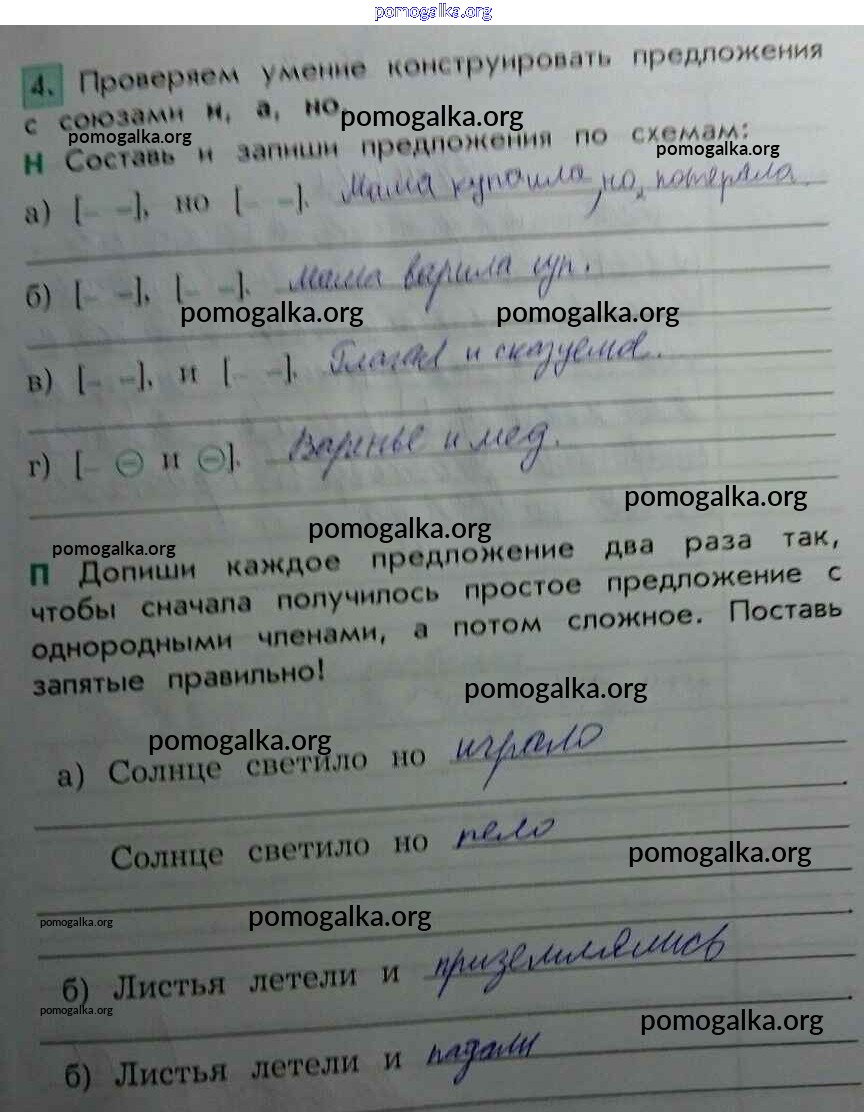 pomogalka.org
4. Проверяем умение конструировать предложения
с союзами и, а, но.
pomogalka.org
pomogalka.org
pomogalka.org
Н Составь и запиши предложения по схемам:
а) [– –], но [– –]. Мама купила, но потеряла.
б) [– –], [– –]. Мама варила суп.
pomogalka.org pomogalka.org
в) [– –], и [– –]. Глагол и сказуемое.
г) [– ⊖ и ⊖]. Варенье и мед.
pomogalka.org
pomogalka.org
pomogalka.org
П Допиши каждое предложение два раза так,
чтобы сначала получилось простое предложение с
однородными членами, а потом сложное. Поставь
запятые правильно!
pomogalka.org
pomogalka.org
а) Солнце светило но играло
Солнце светило но пело
pomogalka.org
pomogalka.org pomogalka.org
б) Листья летели и приземлялись
pomogalka.org
pomogalka.org
б) Листья летели и падали